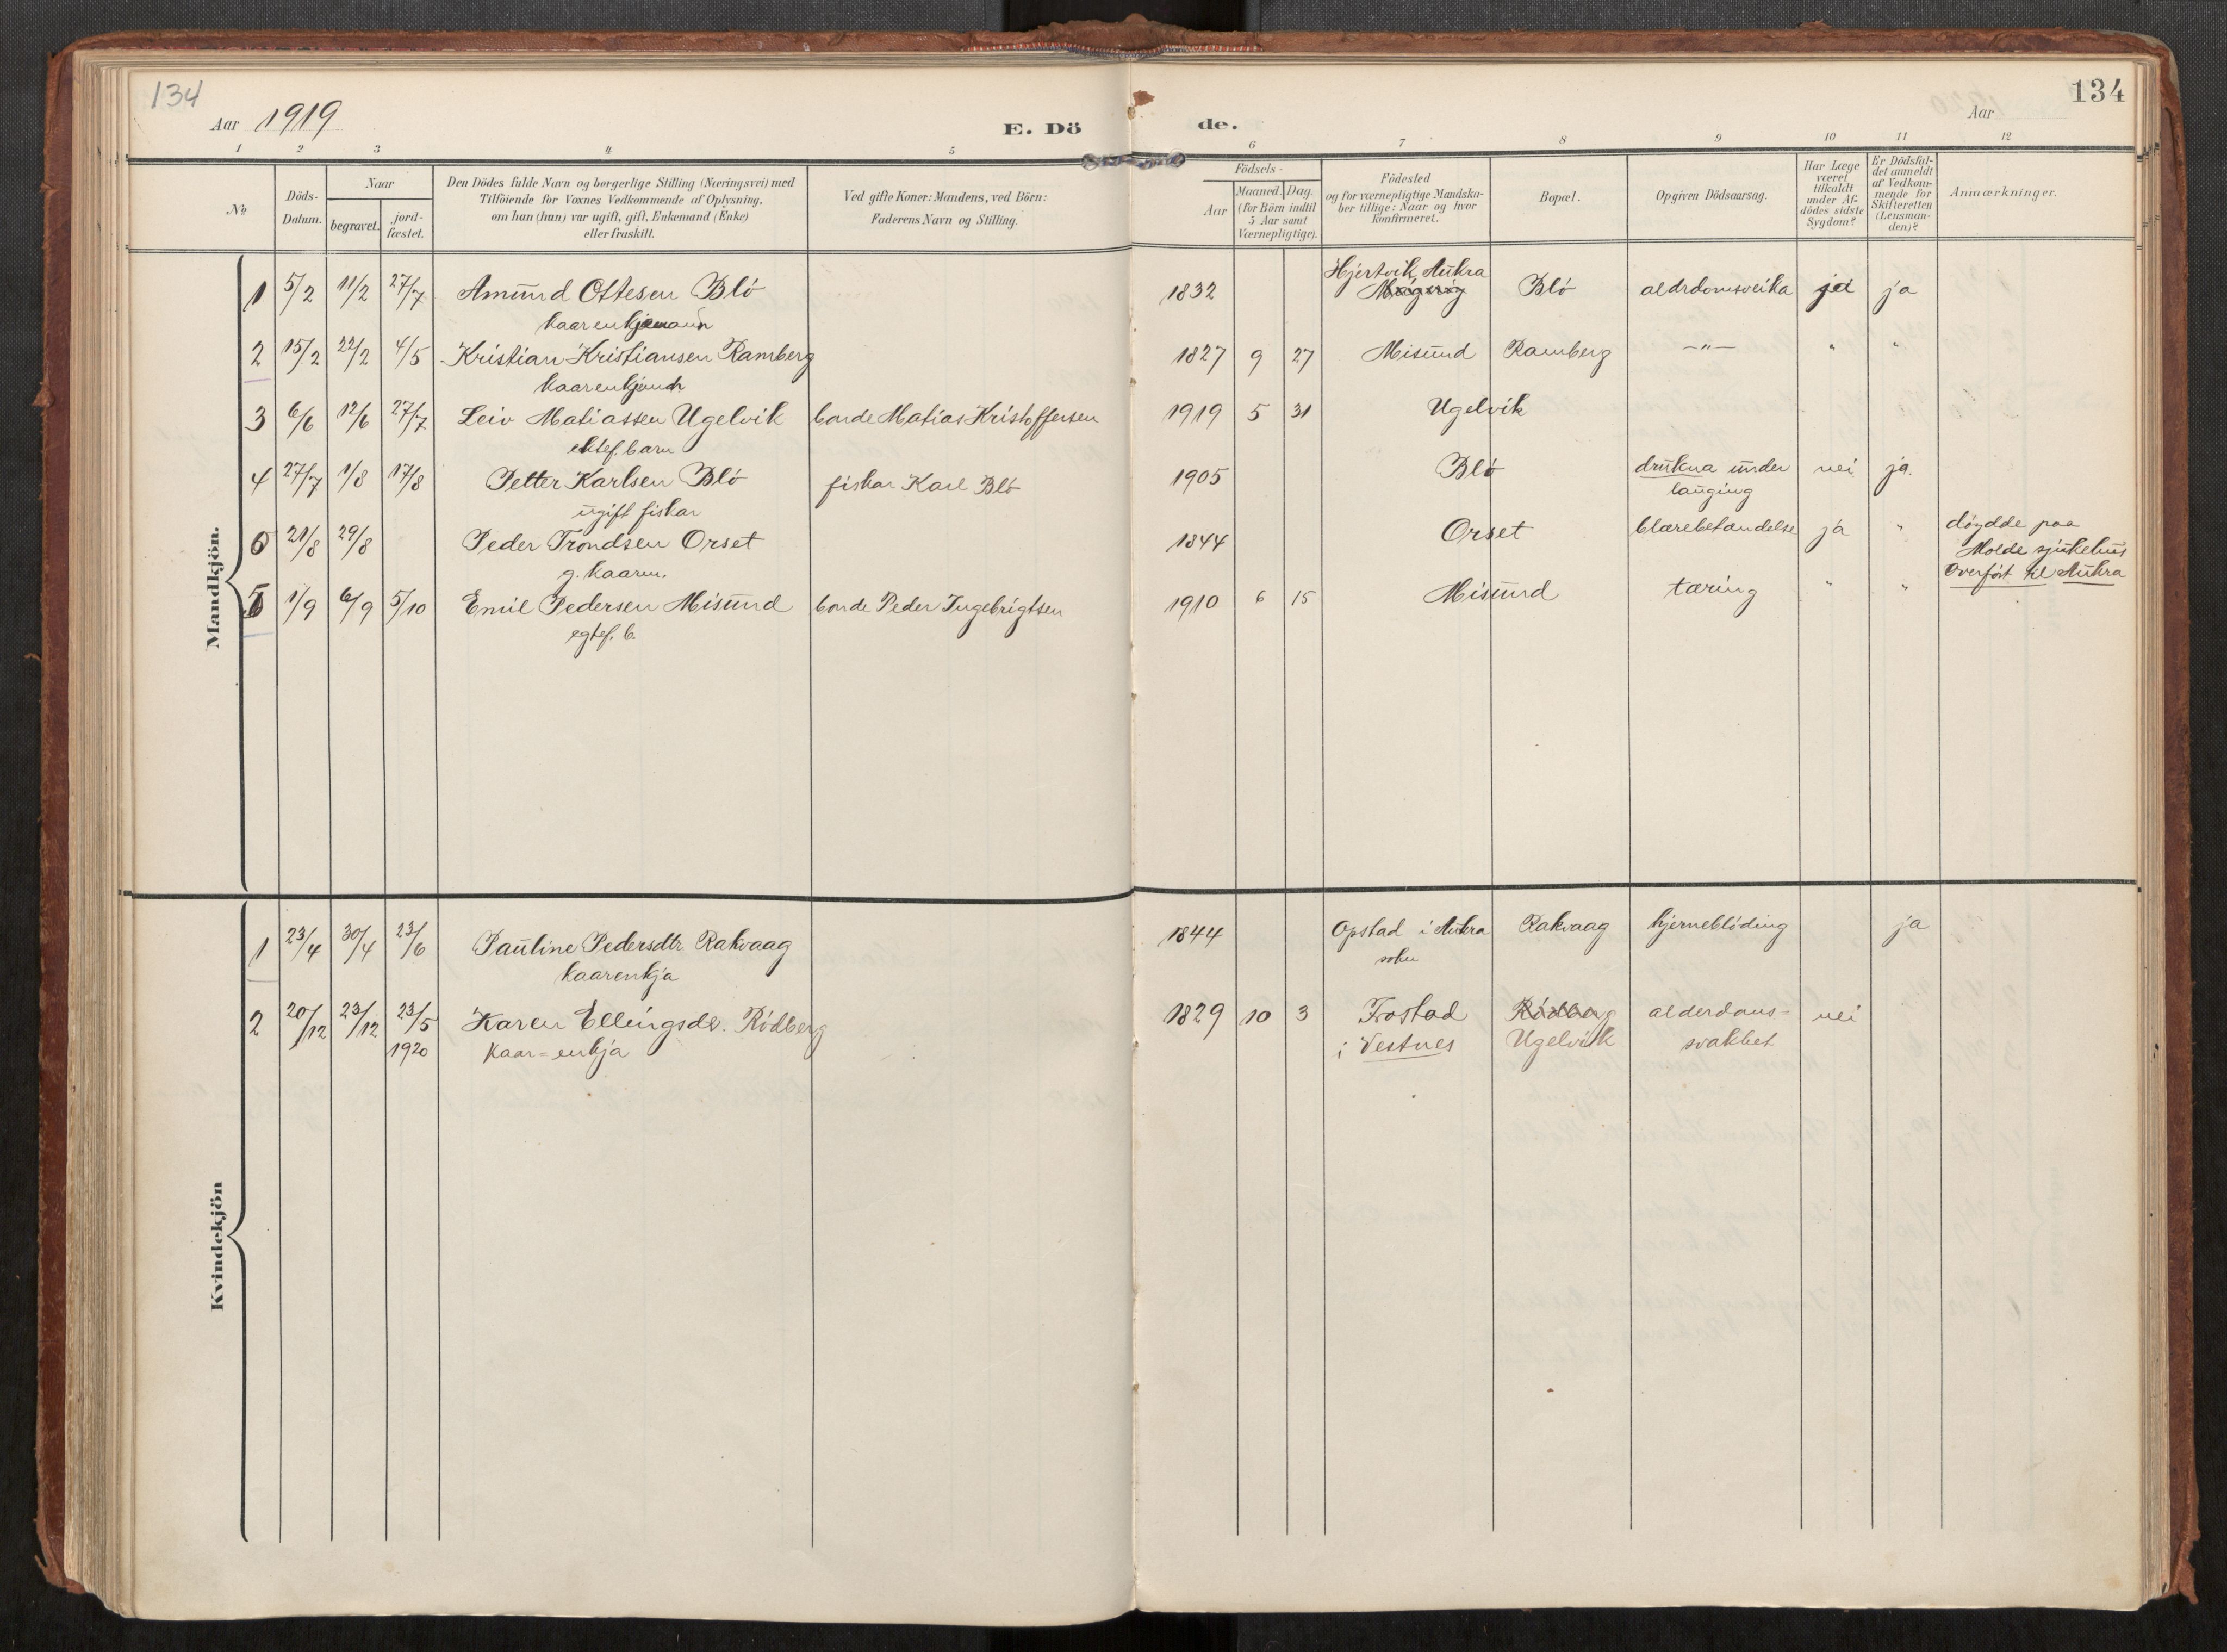 134
134
Aar 1919
E. Dö
de.
Aar
1 2 3 4 5 6 7 8 9 10 11 12
No
Döds-
Datum.
Naar
begravet.
jord-
fæstet.
Den Dödes fulde Navn og borgerlige Stilling (Næringsvei) med
Tilföiende for Voxnes Vedkommende af Oplysning,
om han (hun) var ugift, gift, Enkemand (Enke)
eller fraskilt.
Ved gifte Koner: Mandens, ved Börn:
Faderens Navn og Stilling.
Födsels-
Aar
Maaned. Dag.
(for Börn indtil
5 Aar samt
Værnepligtige).
Födested
og for værnepligtige Mandska-
ber tillige: Naar og hvor
konfirmeret.
Bopæl.
Opgiven Dödsaarsag.
Har Læge
været
tilkaldt
under Af-
dödes sidste
Sygdom?
Er Dödsfal-
det anmeldt
af Vedkom-
mende for
Skifteretten
(Lensman-
den)?
Anmærkninger.
Mandkjön.
1 5/2 11/2 27/7 Amund Ottesen Blö 1832 Hjertvik, Aukra Blö aldrdomsveika ja ja
kaarenkjemann
2 15/2 22/2 4/5 Kristian Kristiansen Ramberg 1827 9 27 Misund Ramberg —"— " "
kaarenkjemann
3 6/6 12/6 27/7 Leiv Matiassen Ugelvik bonde Matias Kristoffersen 1919 5 31 Ugelvik
ektef. barn
4 27/7 1/8 17/8 Petter Karlsen Blö fiskar Karl Blö 1905 Blö drukna under nei ja.
ugift fiskar lauging
21/8 29/8 Peder Trondsen Orset 1844 Orset blærebetændelse ja " döydde paa
g. kaarm. Molde sjukehus
Overfört til Aukra
1/9 6/9 5/10 Emil Pedersen Misund bonde Peder Ingebrigtsen 1910 6 15 Misund tæring " "
egtef. b.
Kvindekjön
1 23/4 30/4 23/6 Pauline Pedersdtr Rakvaag 1844 Opstad i Aukra Rakvaag hjerneblöding ja
kaarenkja sokn
2 20/12 23/12 23/5 Karen Ellingsdr. Rödberg 1829 10 3 Frostad Rödberg alderdoms= nei
1920 kaar=enkja i Vestnes Ugelvik svakhet